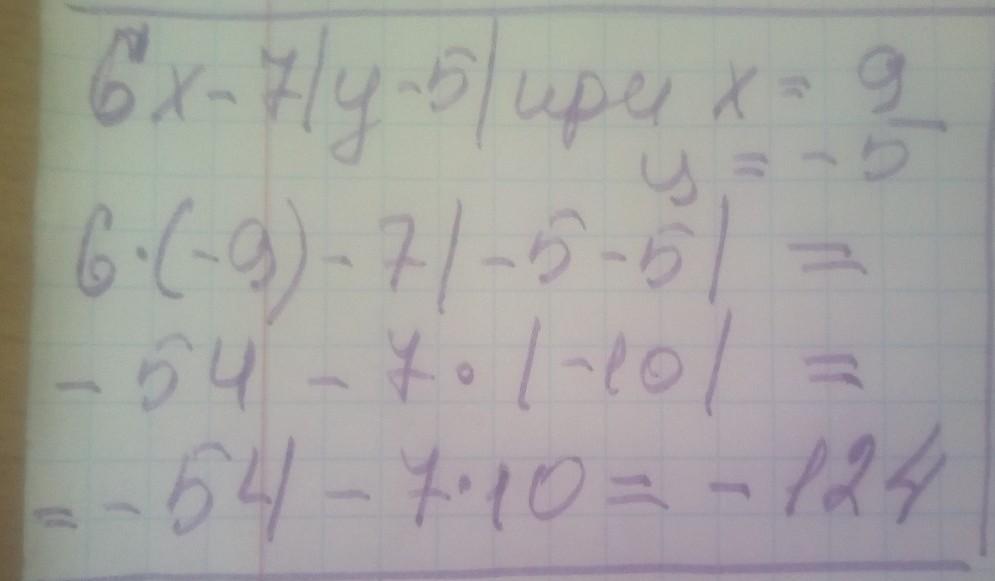 6x - 7|y - 5| при x = 9
y = - 5
6·(-9) - 7| - 5 - 5| =
- 54 - 7·|-10| =
= - 54 - 7·10 = - 124